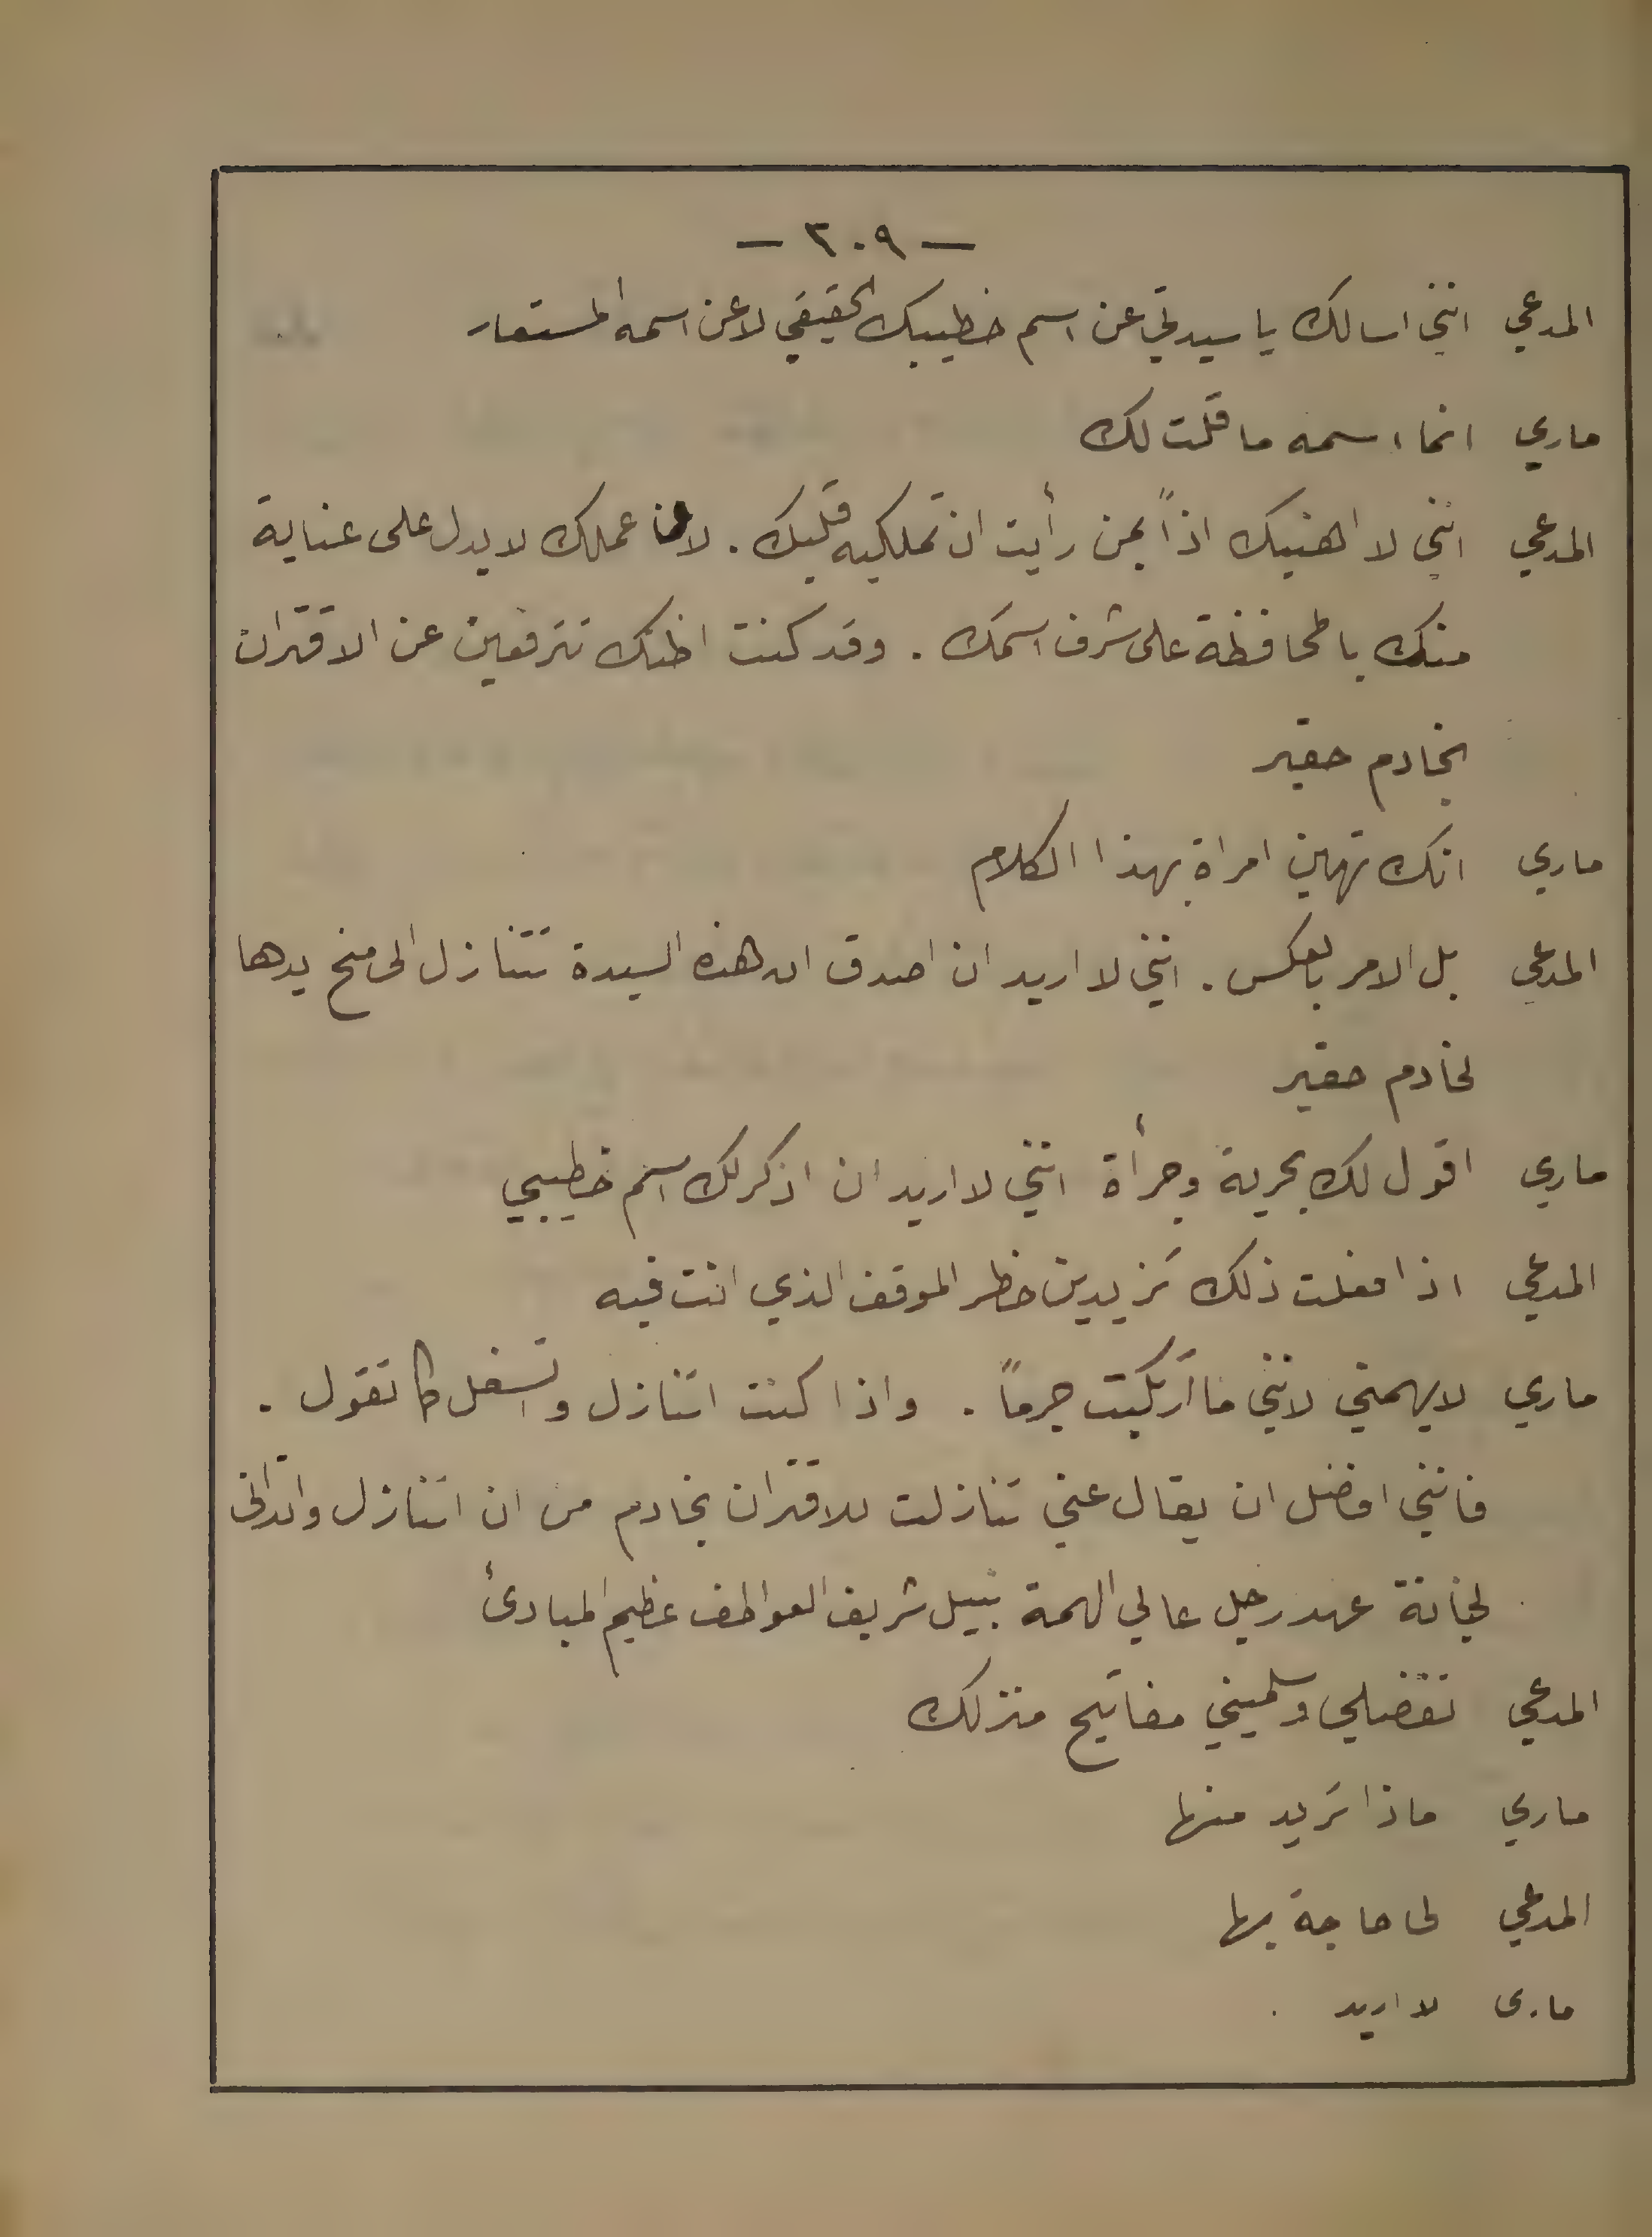 — ٣٠٩ —
المدعي انني اسالك يا سيدتي عن اسم خطيبك الحقيقي لا عن اسمه المستعار
ماري انما اسمه ما قلت لك
المدعي انني لا اهنيك اذاً بمن رأيت ان تملكيه قلبك . لان عملك لا يدل على عناية
منك بالمحافظة على شرف اسمك . وقد كنت اظنك تترفعين عن الاقتران
بخادم حقير
ماري انك تهين امراة بهذا الكلام
المدعي بل الامر بالعكس . انني لا اريد ان اصدق ان هذه السيدة تتنازل الى منح يدها
لخادم حقير
ماري اقول لك بحرية وجرأة انني لا اريد ان اذكر لك اسم خطيبي
المدعي اذا فعلت ذلك تزيدين خطر الموقف الذي انت فيه
ماري لا يهمني لانني ما ارتكبت جرماً . واذا كنت اتنازل واتسفل كما تقول .
فانني افضل ان يقال عني تنازلت للاقتران بخادم من ان اتنازل واتدانى
لخيانة عهد رجل عالي الهمة نبيل شريف العواطف عظيم المبادئ
المدعي تفضلي وسلميني مفاتيح منزلك
ماري ماذا تريد منها
المدعي لي حاجة بها
ماري لا اريد .